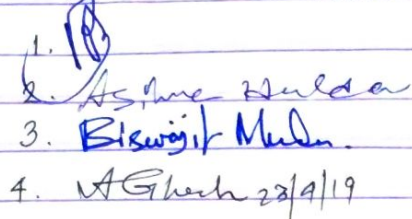 1.
2. Asima Halder
3. Biswajit Murdu.
4. A Ghosh 23/9/19